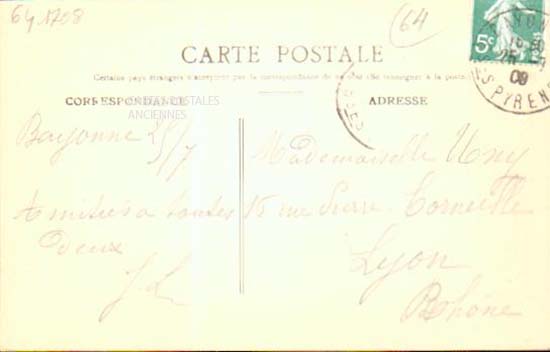 64 1708
(64
5c
CARTE POSTALE
Certains pays étrangers n'acceptent pas la correspondance de ce côté (se renseigner à la poste)
CORRESPONDANCE
ADRESSE
CARTES POSTALES
ANCIENNES
09
SPYREN
Bayonne 25/7
Amitiés à toutes
deux
J L
Mademoiselle
15 rue Pierre Corneille
Lyon
Rhône